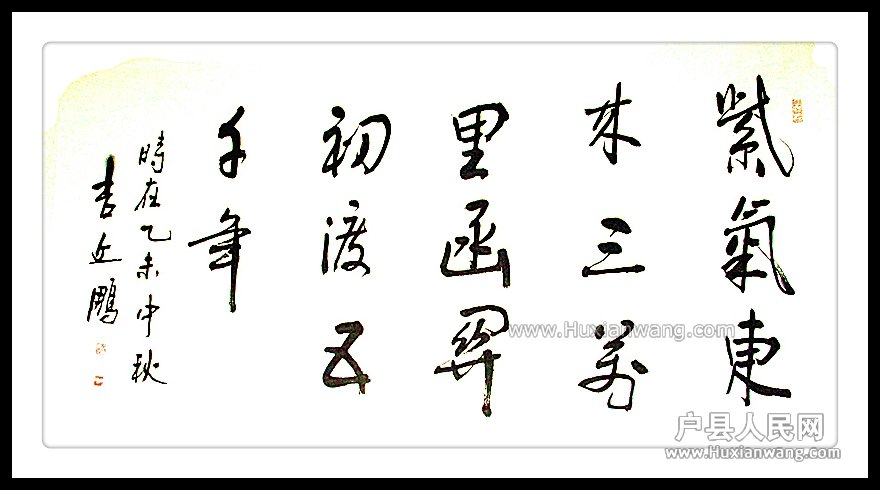 紫氣東
来三萬
里函關
初渡五
千年
時在乙未中秋
鵬
www.Huxianwang.com
户县人民网
www.Huxianwang.com